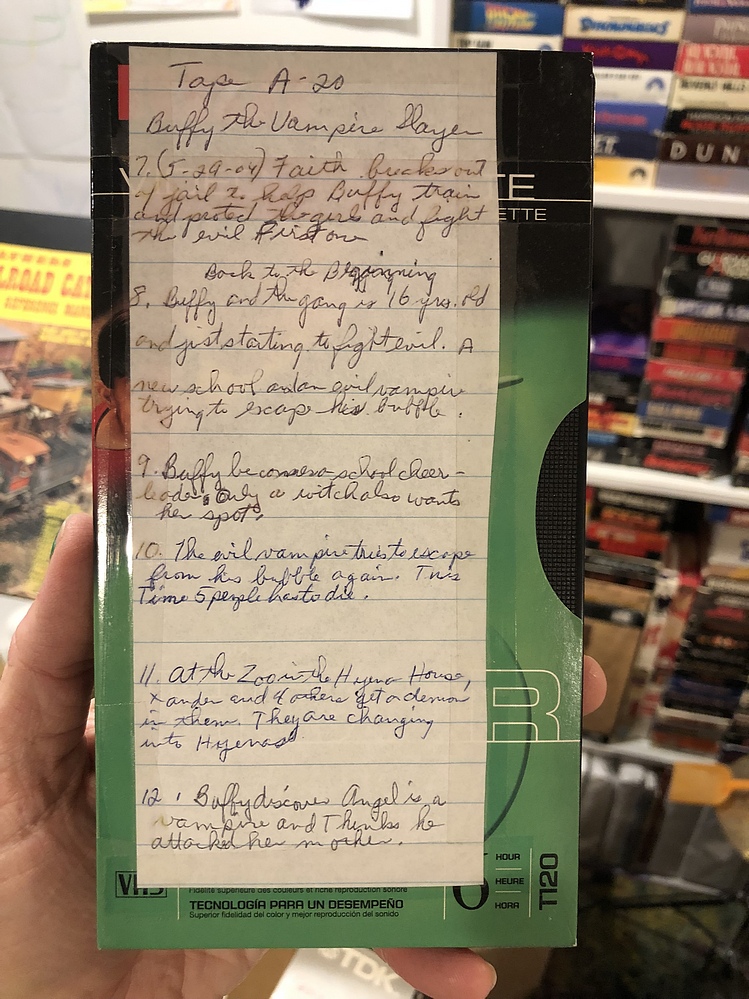 Tape A-20
Buffy the Vampire Slayer
7. (5-29-04) Faith breaks out
of jail to help Buffy train
and protect the girls and fight
the evil first one
Back to the Beginning
8. Buffy and the gang is 16 yrs. old
and just starting to fight evil. A
new school and an evil vampire
trying to escape his bubble.
9. Buffy becomes a school cheer-
leader. Only a witch also wants
her spot.
10. The evil vampire tries to escape
from his bubble again. This
Time 5 people has to die.
11. At the Zoo in the Hyena House,
Xander and 4 others get a demon
in them. They are changing
into Hyenas.
12. Buffy discovers Angel is a
vampire and Thinks he
attacked her mother.
TE
ETTE
R
VHS
6
HOUR
HEURE
HORA
T120
Fidélité supérieure des couleurs et riche reproduction sonore
TECNOLOGÍA PARA UN DESEMPEÑO
Superior fidelidad del color y mejor reproducción del sonido
TDK
DUN